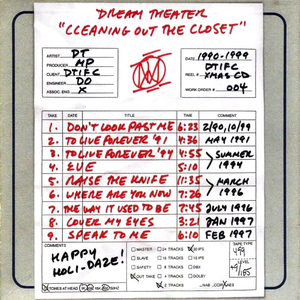 DREAM THEATER
"CLEANING OUT THE CLOSET"
ARTIST DT
PRODUCER MP
CLIENT DTIFC
ENGINEER DO
ASSOC. ENG. X
DATE 1990-1999
DTIFC
REEL # XMAS CD
WORK ORDER # 004
TAKE DATE TITLE TIME COMMENT
1. DON'T LOOK PAST ME 6:23 2/90, 10/99
2. TO LIVE FOREVER '91 4:36 MAY 1991
3. TO LIVE FOREVER '94 4:55 SUMMER
4. EVE 5:10 1994
5. RAISE THE KNIFE 11:35 MARCH
6. WHERE ARE YOU NOW 7:26 1996
7. THE WAY IT USED TO BE 7:45 JULY 1996
8. COVER MY EYES 3:21 JAN 1997
9. SPEAK TO ME 6:10 FEB 1997
COMMENTS
HAPPY
HOLI-DAZE!
MASTER 24 TRACKS 30 IPS
SLAVE 16 TRACKS 15 IPS
SAFETY 8 TRACKS DBX
OUT TAKE 2 TRACKS DOLBY
TAPE TYPE
499
TONES AT HEAD